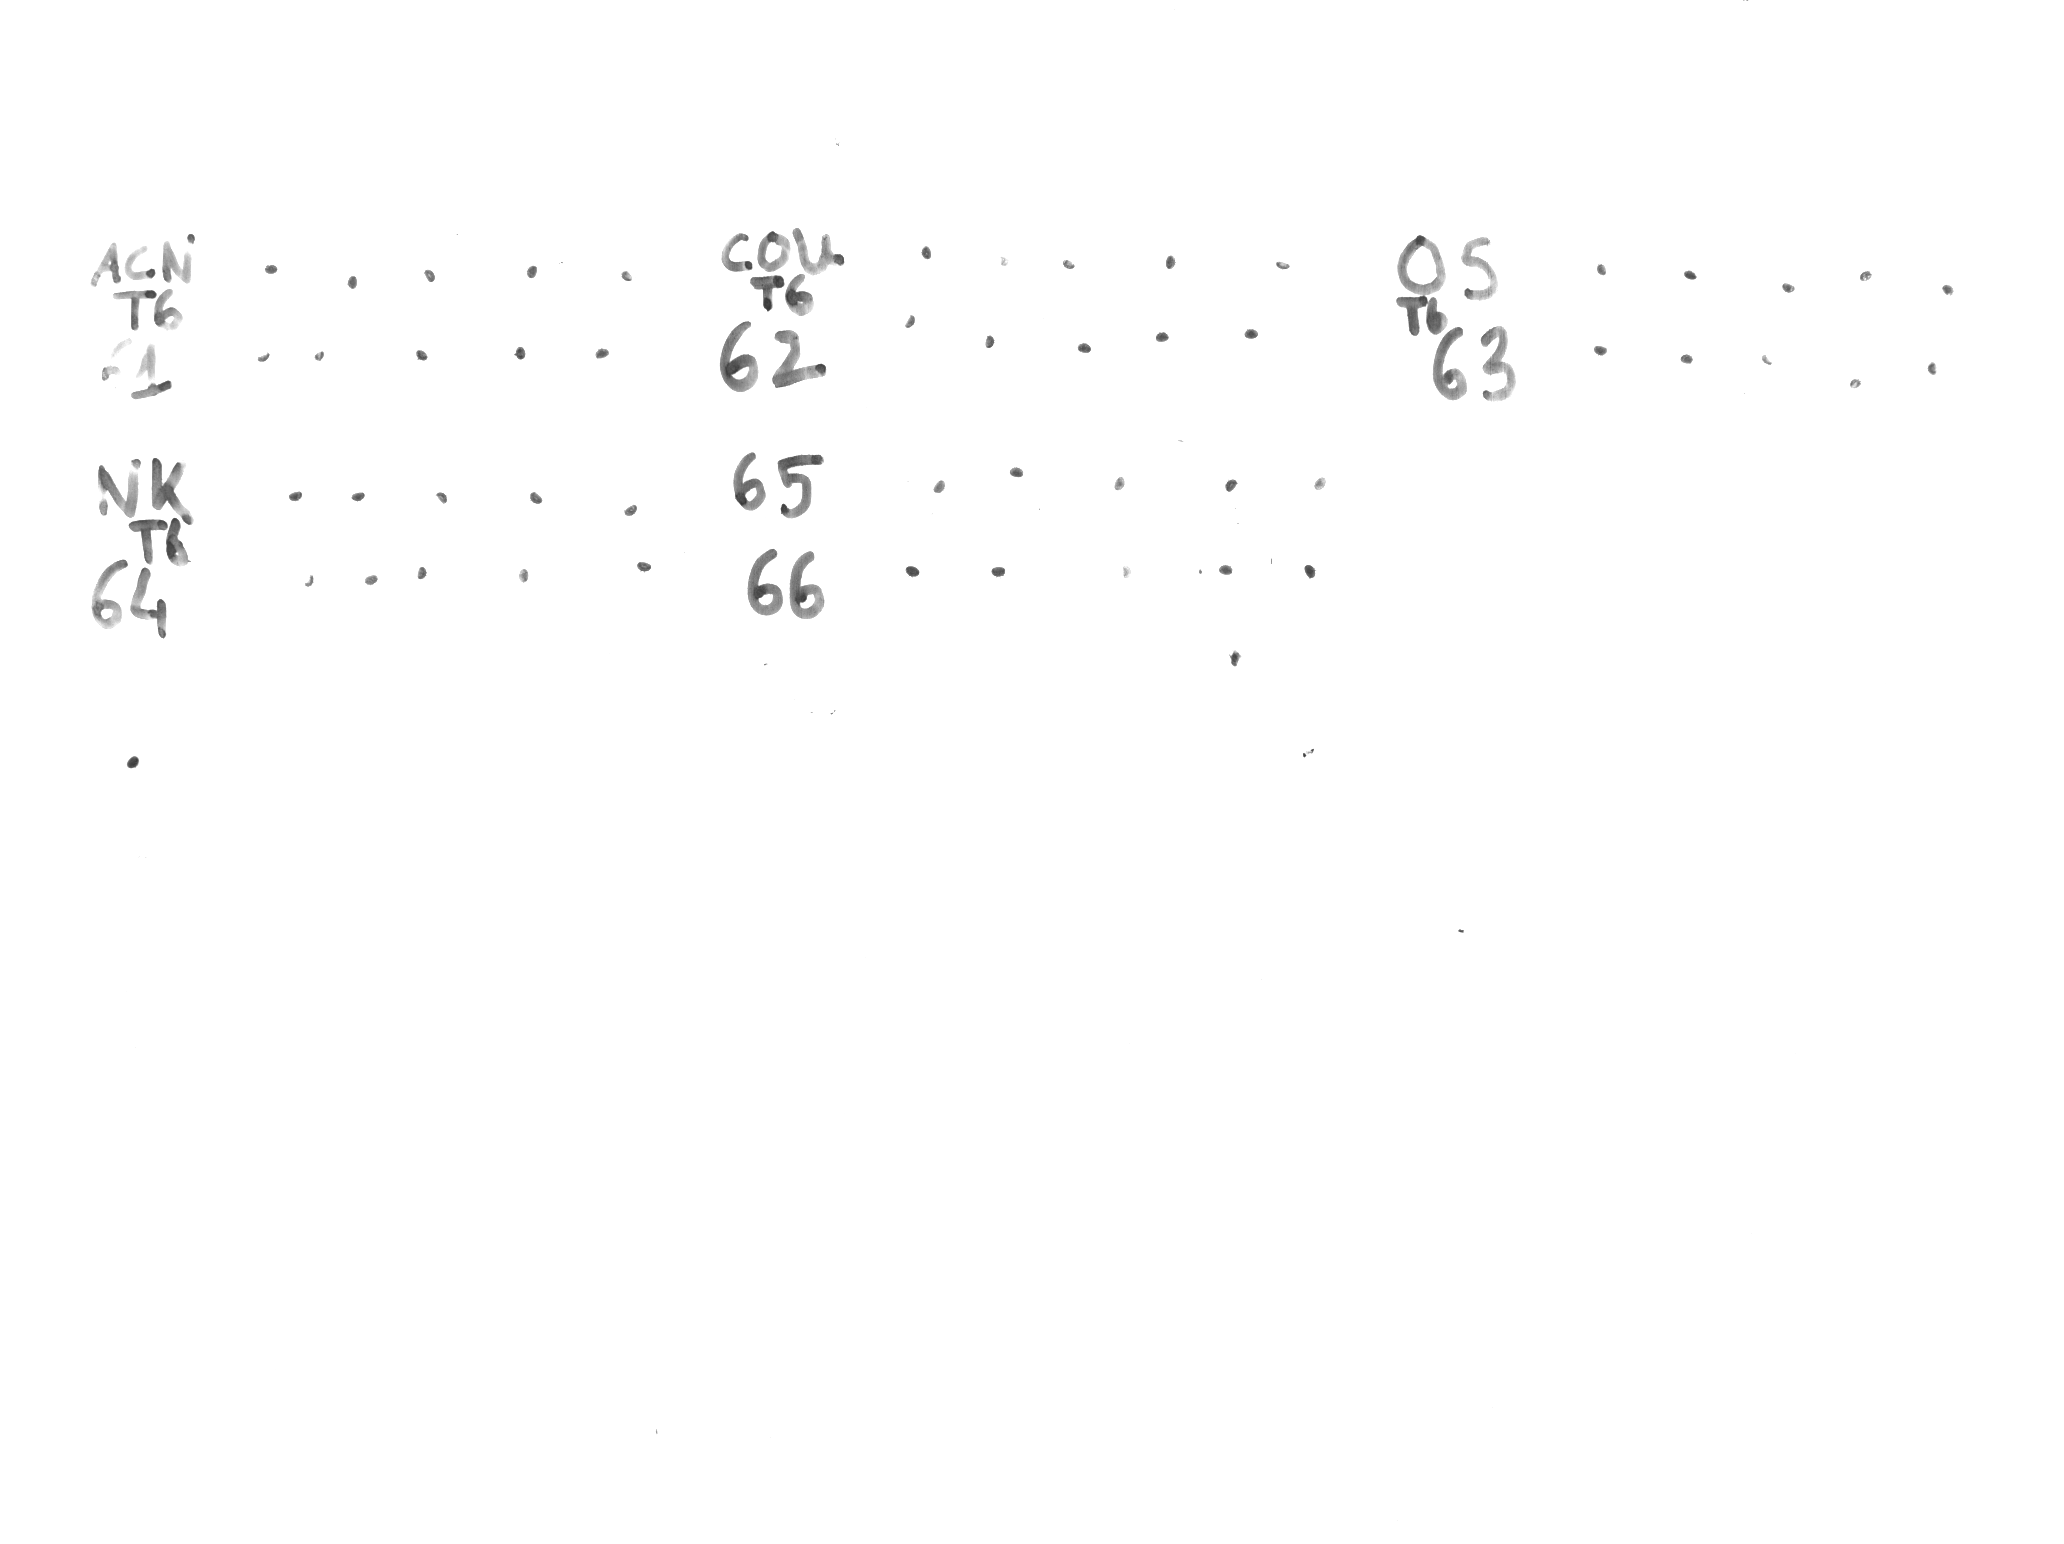 ACN
T6
61
COU
T6
62
OS
T6
63
NK
T6
64
65
66